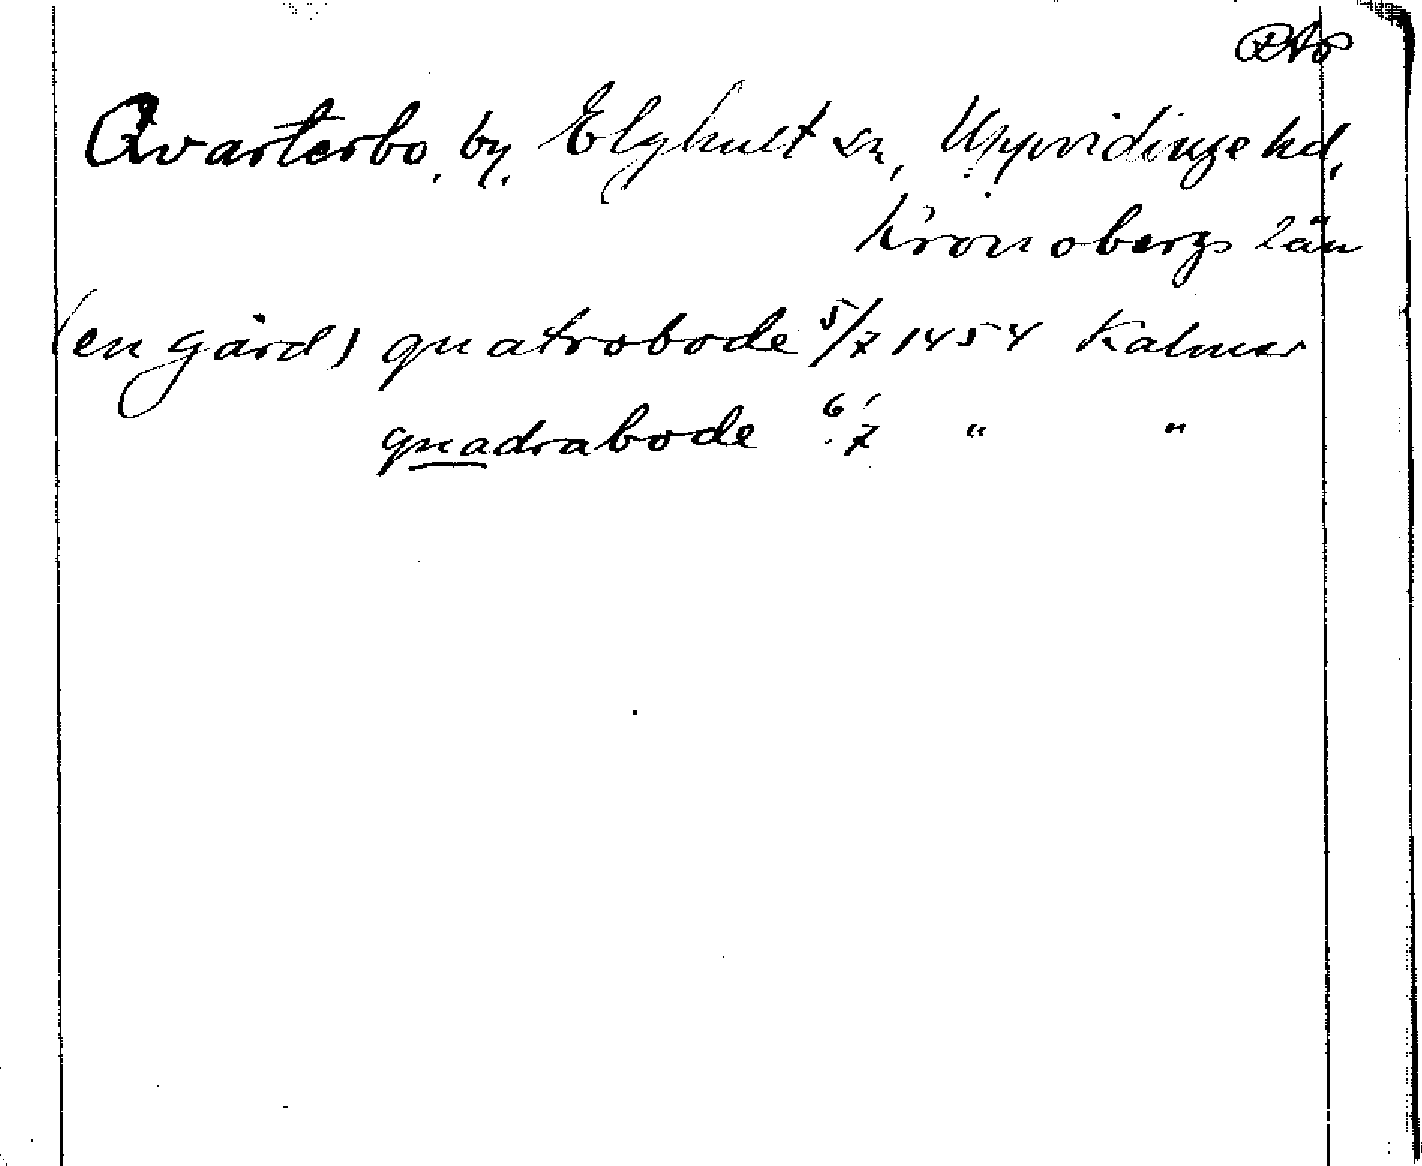 RAp
Qvarterbo, by, Elghult sn, Uppvidinge hd,
Kronobergs län
(en gård) quatrobode 5/7 1454 Kalmar
quadrabode 6/7 " "